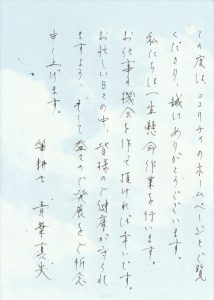 この度は、ココリティのホームページをご覧
くださり、誠にありがとうございます。
私たちは一生懸命作業を行います。
お仕事の機会を作って頂ければ幸いです。
お忙しい日々の中、皆様のご健康が守られ
ますよう、そして益々のご発展をご祈念
申し上げます。
筆耕士 青葉真央